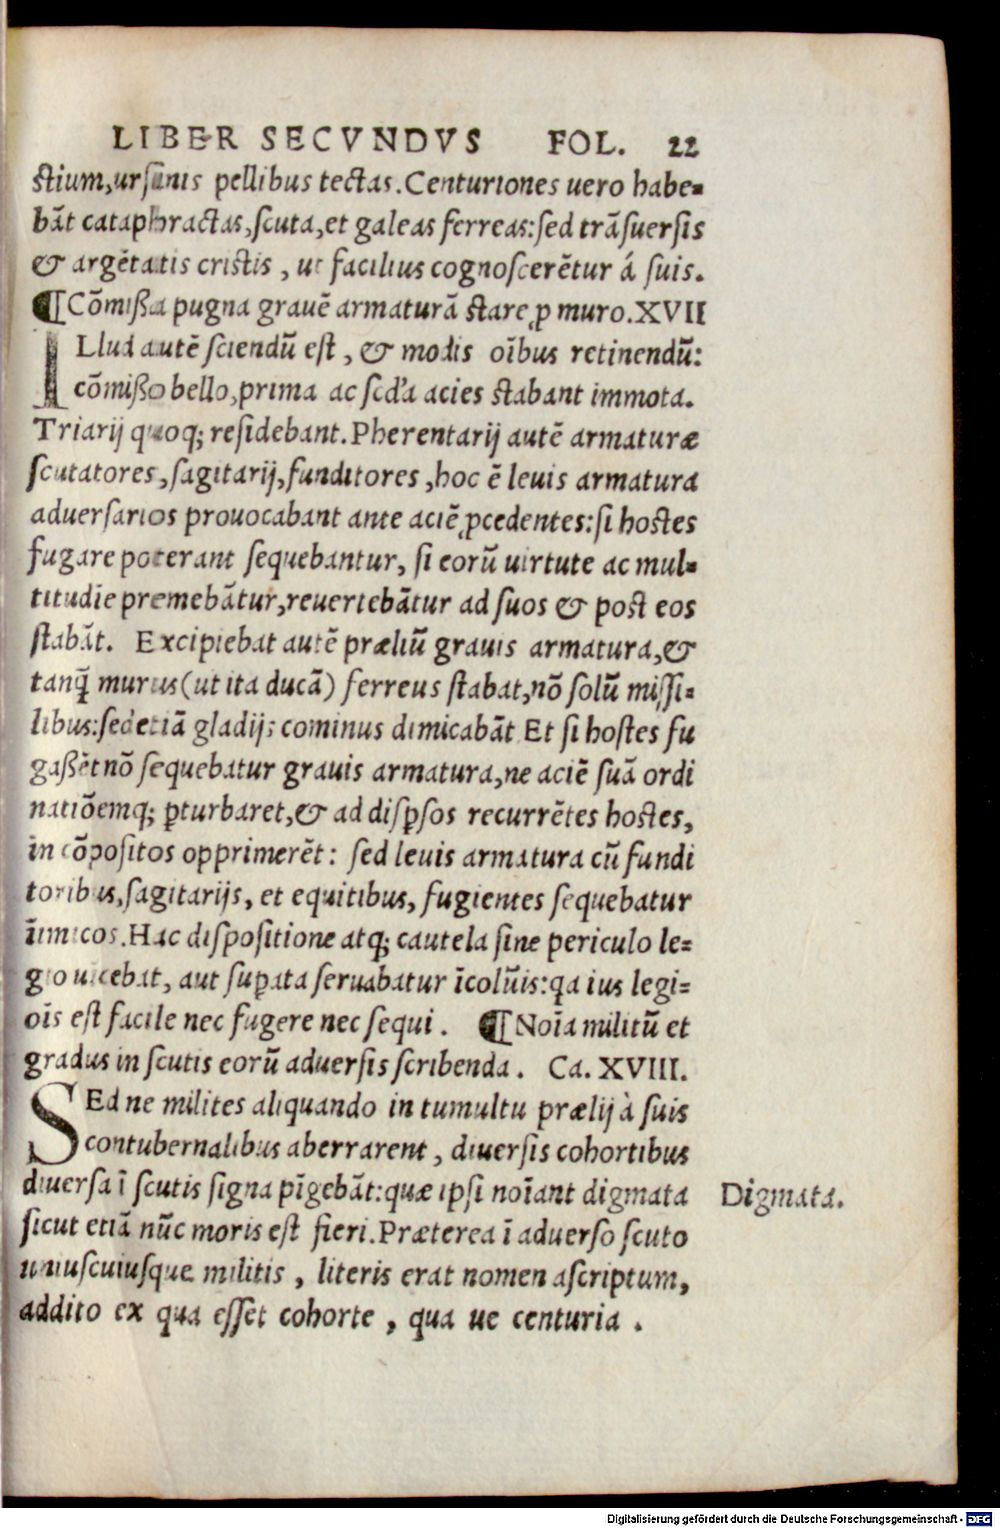 LIBER SECVNDVS FOL. 22
stium,ursinis pellibus tectas.Centuriones uero habe-
bāt cataphractas,scuta,et galeas ferreas:sed trāsuersis
& argētatis cristis , ut facilius cognoscerētur á suis.
¶Cōmißa pugna grauē armaturā stare ꝓ muro.XVII
ILlud autē sciendū est , & modis oību​s retinendū:
cōmißo bello,prima ac scd'a acies stabant immota.
Triarij quoq; residebant.Pherentarij autē armaturæ
scutatores,sagitarij,funditores,hoc ē leuis armatura
aduersarios prouocabant ante aciē ꝓcedentes:si hostes
fugare poterant sequebantur, si eorū uirtute ac mul-
titudie premebātur,reuertebātur ad suos & post eos
stabāt. Excipiebat autē præliū grauis armatura,&
tanq̄ murus(ut ita ducā) ferreus stabat,nō solū missi-
libus:sed etiā gladijs cominus dimicabāt Et si hostes fu
gaßēt nō sequebatur grauis armatura,ne aciē suā ordi
natiōemq; ꝑturbaret,& ad disꝑsos recurrētes hostes,
in cōpositos opprimerēt: sed leuis armatura cū fundi
toribus,sagitarijs, et equitibus, fugientes sequebatur
īimicos.Hac dispositione atq; cautela sine periculo le-
gio uīcebat, aut suꝑata seruabatur īcolūis:qa ius legi-
oīs est facile nec fugere nec sequi . ¶Noīa militū et
gradus in scutis eorū aduersis scribenda . Ca. XVIII.
SEd ne milites aliquando in tumultu prælij à suis
contubernalibus aberrarent , diuersis cohortibus
diuersa ī scutis signa pīgebāt:quæ ipsi noīant digmata
Digmata.
sicut etiā nūc moris est fieri.Præterea ī aduerso scuto
uniuscuiusque militis , literis erat nomen ascriptum,
addito ex qua esset cohorte , qua ue centuria .
Digitalisierung gefördert durch die Deutsche Forschungsgemeinschaft - DFG